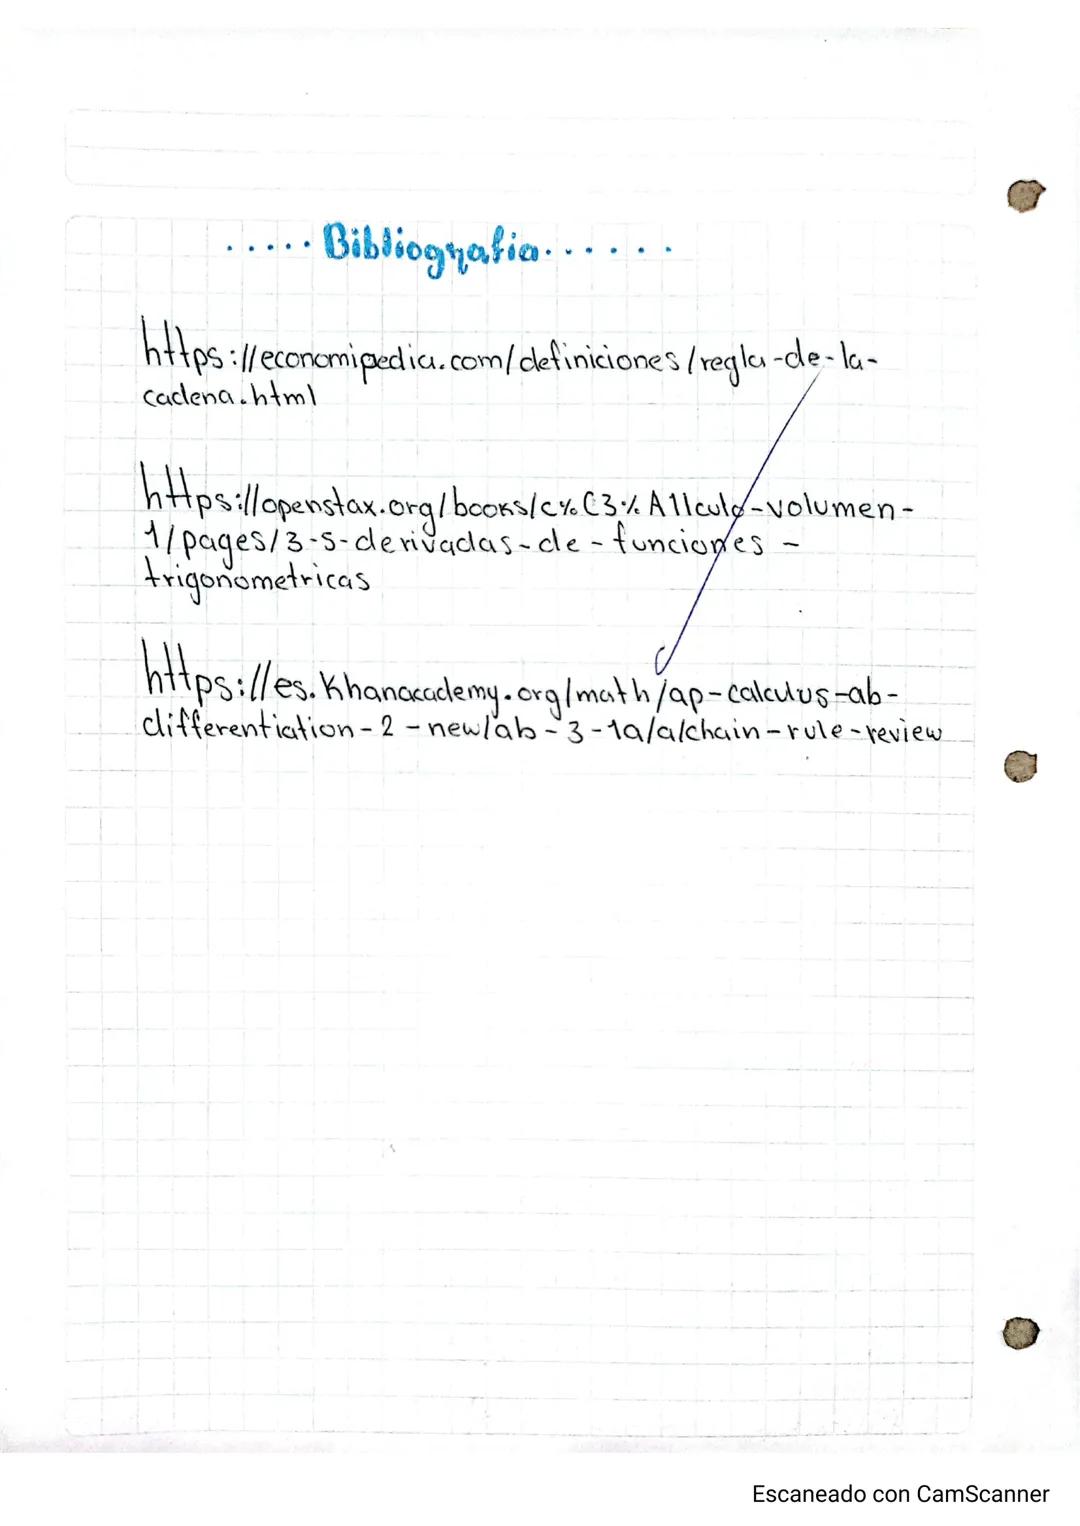 ..... Bibliografia......
https://economipedia.com/definiciones/regla-de-la-
cadena.html
https://openstax.org/books/c%C3%A1lculo-volumen-
1/pages/3-5-derivadas-de-funciones-
trigonometricas
https://es.Khanacademy.org/math/ap-calculus-ab-
differentiation-2-new/ab-3-1a/a/chain-rule-review
Escaneado con CamScanner